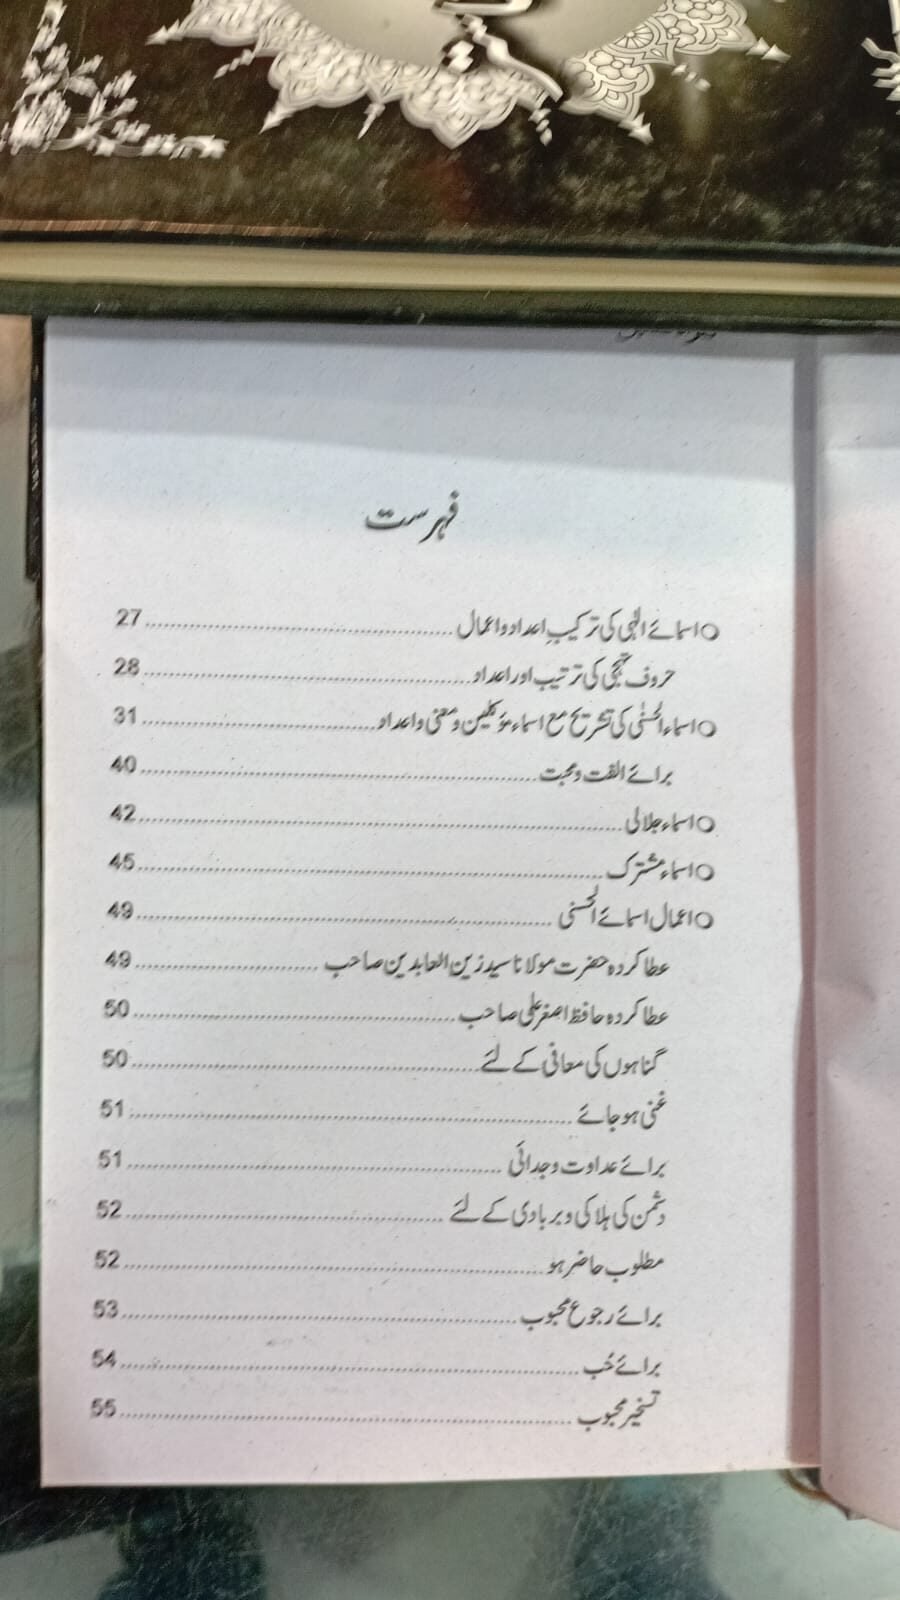 فہرست
اسمائے الٰہی کی ترکیب اعداد و اعمال 27
حروف تہجی کی ترتیب اور اعداد 28
اسماء الحسنٰی کی تشریح مع اسماء مؤکلین و معنی و اعداد 31
برائے الفت و محبت 40
اسماء جلالی 42
اسماء مشترک 45
اعمال اسمائے الحسنٰی 49
عطا کردہ حضرت مولانا سید زین العابدین صاحب 49
عطا کردہ حافظ اصغر علی صاحب 50
گناہوں کی معافی کے لئے 50
غنی ہو جائے 51
برائے عداوت و جدائی 51
دشمن کی ہلاکی و بربادی کے لئے 52
مطلوب حاضر ہو 52
برائے رجوع محبوب 53
برائے حُب 54
تسخیر محبوب 55